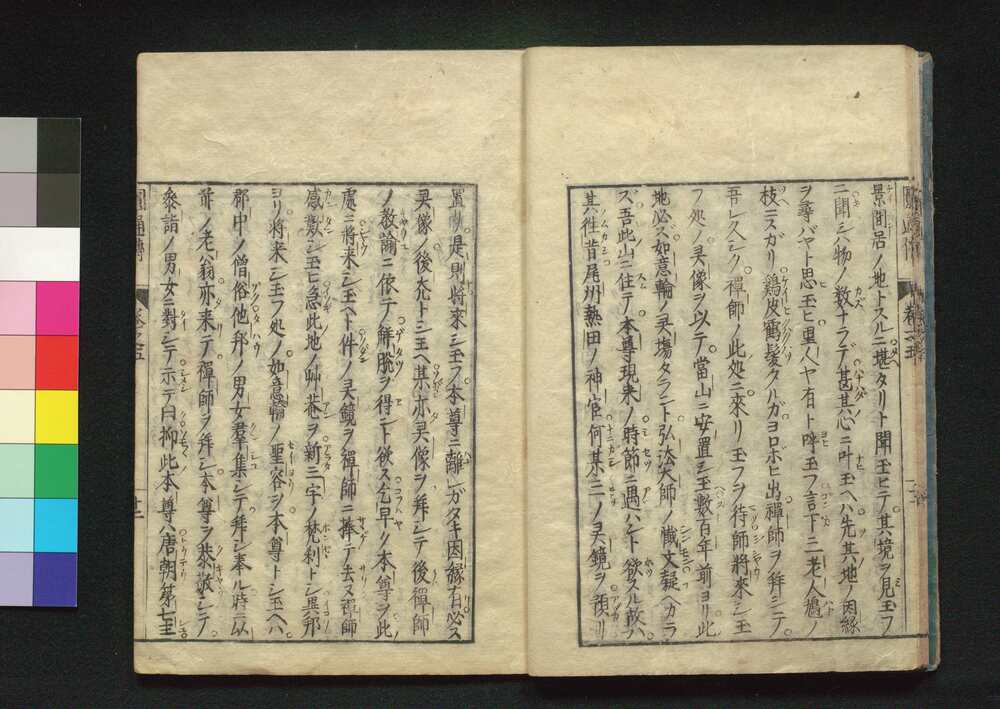 景間居ノ地トスルニ堪タリト聞玉ヒテ其境ヲ見玉フ
ニ聞シハ物ノ数ナラデ甚其心ニ叶玉ヘハ先其地ノ因縁
ヲ尋バヤト思玉ヒ里人ヤ有ト呼玉フ言下ニ老人鳩ノ
枝ニスガリ鶏皮鶴髪タルガヨロホヒ出禪師ヲ拜シテ
吾レ久シク禪師ノ此処ニ來リ玉フヲ待師將來シ玉
フ処ノ灵像ヲ以テ當山ニ安置シ玉數百年前ヨリ此
地必ズ如意輪ノ灵塲タラント弘法大師ノ懴文疑ベカラ
ズ吾此山ニ住テ本尊現来ノ時節ニ遇ハント欲スル故ハ
其徃昔尾州熱田ノ神官何某ニノ灵鏡ヲ預リ
置リ是則將來シ玉フ本尊ニ離レガタキ因縁有必ス
灵像ノ後光トシ玉ヘ某亦灵像ヲ拜シテ後禪師
ノ教諭ニ依テ解脱ヲ得ント欲ス乞早ク本尊ヲ此
處ニ將来シ玉ヘト件ノ灵鏡ヲ禪師ニ捧テ去ヌ禪師
感歎シ玉ヒ急此地ノ艸菴ヲ新ニ一宇ノ梵刹トシ異邦
ヨリ將来シ玉フ処ノ如意輪ノ聖容ヲ本尊トシ玉ヘハ
郡中ノ僧俗他邦ノ男女羣集シテ拜シ奉ル時ニ以
前ノ老翁亦来テ禪師ヲ拜シ本尊ヲ恭敬シテ
參詣ノ男女ニ對シテ示テ曰抑此本尊ハ唐朝第七主